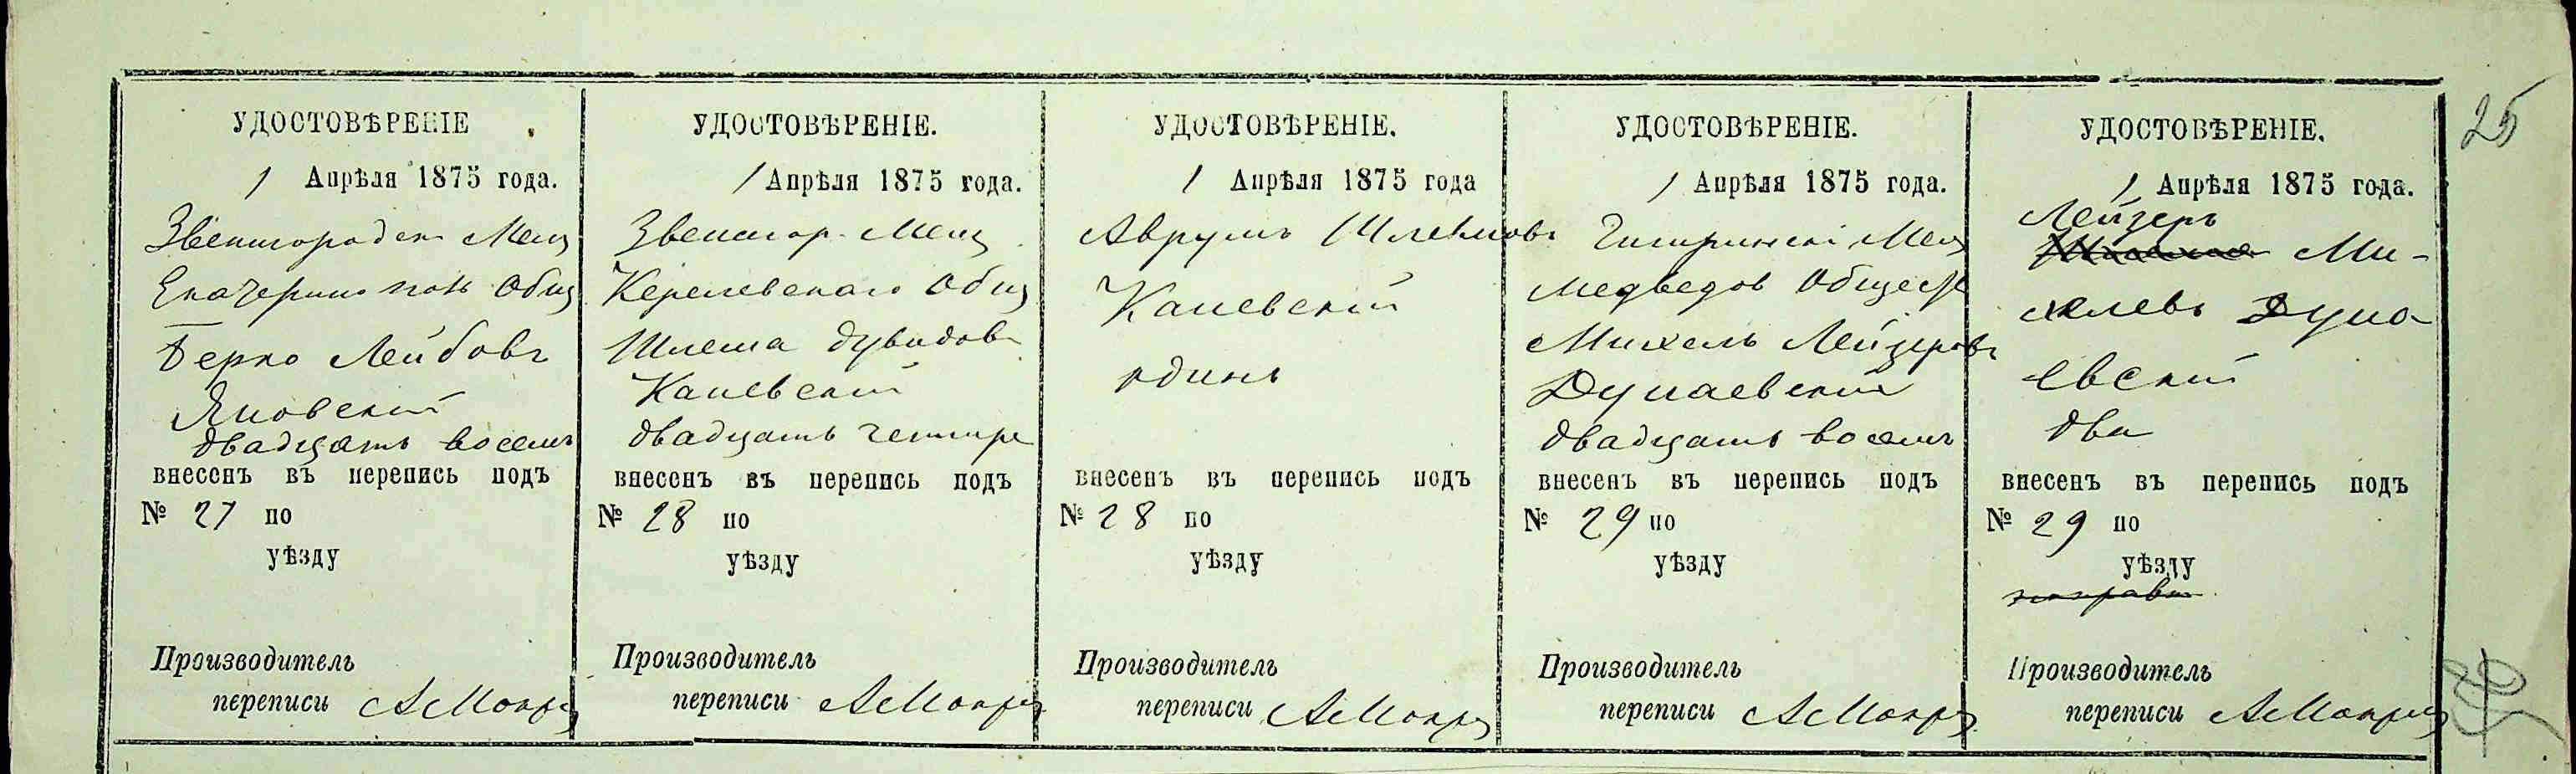 25
УДОСТОВѢРЕНІЕ
1 Апрѣля 1875 года.
Звенигородск Мещ
Екатеринопол Общ
Берко Лейбовъ
Яновский
двадцать восемь
внесенъ въ перепись подъ
№ 27 по
уѣзду
Производитель
переписи
УДОСТОВѢРЕНІЕ.
1 Апрѣля 1875 года.
Звенигор. Мещ
Керелевскаго Общ
Шлема Дувидовъ
Каневский
двадцать четыре
внесенъ въ перепись подъ
№ 28 по
уѣзду
Производитель
переписи
УДОСТОВѢРЕНІЕ.
1 Апрѣля 1875 года
Аврумъ Шлемовъ
Каневский
одинъ
внесенъ въ перепись подъ
№ 28 по
уѣзду
Производитель
переписи
УДОСТОВѢРЕНІЕ.
1 Апрѣля 1875 года.
Чигиринскi Мещ
Медведов Общест
Михель Лейзеровъ
Дунаевский
двадцать восемь
внесенъ въ перепись подъ
№ 29 по
уѣзду
Производитель
переписи
УДОСТОВѢРЕНІЕ.
1 Апрѣля 1875 года.
Лейзеръ
Ми-
хелевъ Дуна
евский
два
внесенъ въ перепись подъ
№ 29 по
уѣзду
Производитель
переписи